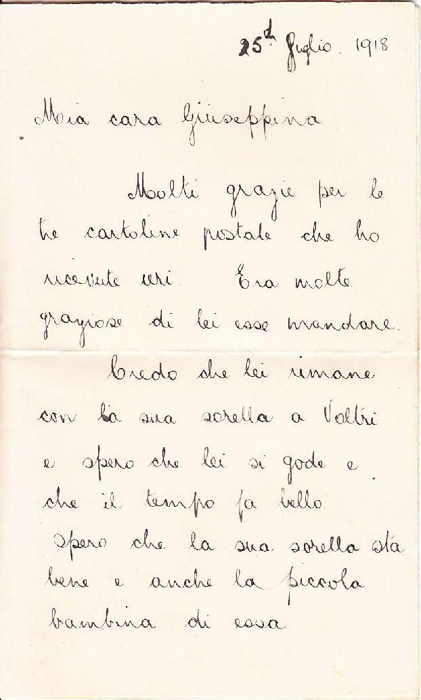 25d Luglio. 1918
Mia cara Giuseppina
Molti grazie per le
tre cartoline postale che ho
ricevute ieri. Era molte
graziose di lei esse mandare.
Credo che lei rimane
con la sua sorella a Voltri
e spero che lei si gode e
che il tempo fa bello
spero che la sua sorella sta
bene e anche la piccola
bambina di essa